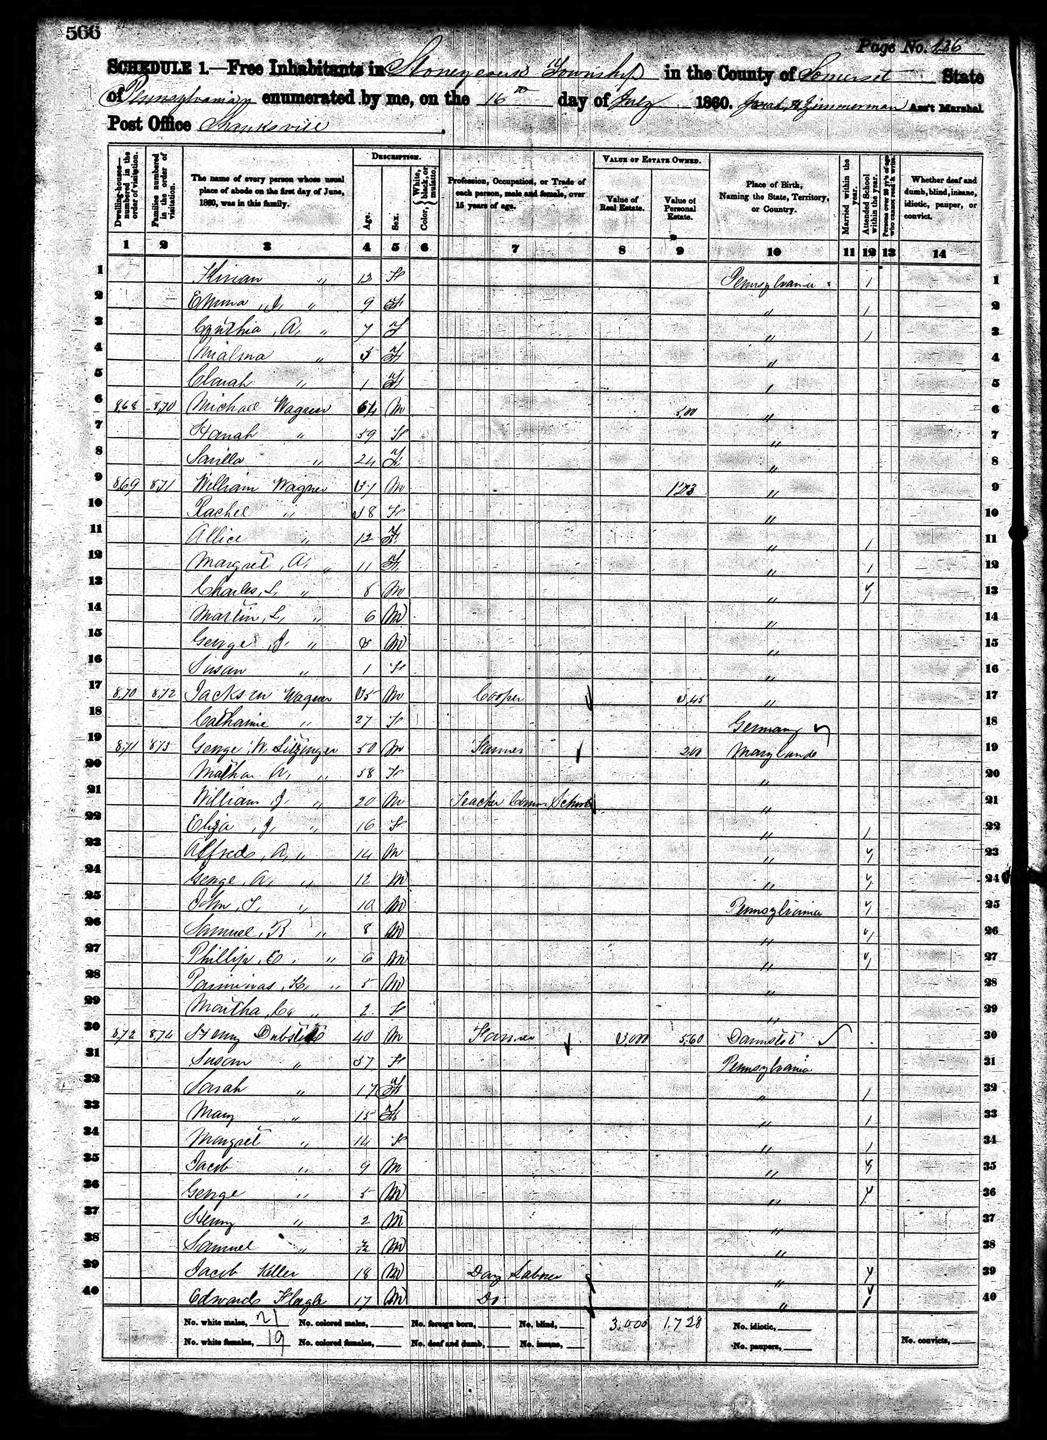 566
Page No. 136
SCHEDULE 1.—Free Inhabitants in Stoneycreek Township in the County of Somerset State
of Pennsylvania enumerated by me, on the 16th day of July 1860. Zimmerman Ass't Marshal.
Post Office Shanksville
Dwelling-houses—numbered in the order of visitation.
Families numbered in the order of visitation.
The name of every person whose usual place of abode on the first day of June, 1860, was in this family.
DESCRIPTION.
Age.
Sex.
Color, White, black, or mulatto.
Profession, Occupation, or Trade of each person, male and female, over 15 years of age.
VALUE OF ESTATE OWNED.
Value of Real Estate.
Value of Personal Estate.
Place of Birth, Naming the State, Territory, or Country.
Married within the year.
Attended School within the year.
Persons over 20 y'rs of age who cannot read & write.
Whether deaf and dumb, blind, insane, idiotic, pauper, or convict.
1 2 3 4 5 6 7 8 9 10 11 12 13 14
1 " 12 F Pennsylvania 1 1
2 Emma J. " 9 F " 1 2
3 Cynthia A. " 7 F " 1 3
4 " 5 F " 4
5 Clarah " 1 F " 5
6 868 870 Michael Wagner 64 M 500 " 6
7 Hanah " 59 F " 7
8 Savilla " 24 F " 8
9 869 871 William Wagner M " 9
10 Rachel " F " 10
11 Allice " 12 F " 1 11
12 Margret A. " 11 F " 1 12
13 Charles L. " 8 M " 1 13
14 Martin L. " 6 M " 14
15 George J. " M " 15
16 Susan " 1 F " 16
17 870 872 Jackson Wagner 35 M Cooper " 17
18 Catharine " 27 F Germany 18
19 871 873 George W. Litzinger 50 M Farmer 200 Maryland 19
20 A. " 38 F " 20
21 William J. " 20 M Teacher Common School " 21
22 Eliza J. " 16 F " 1 22
23 Alfred A. " 14 M " 1 23
24 George A. " 12 M " 1 24
25 John T. " 10 M Pennsylvania 1 25
26 Samuel B " 8 M " 1 26
27 Phillip O. " 6 M " 1 27
28 " 5 M " 28
29 Martha C. " 2 F " 29
30 872 874 Henry 40 M Farmer 3,000 560 Darmstat 30
31 Susan " 37 F Pennsylvania 31
32 Sarah " 17 F " 1 32
33 Mary " 15 F " 1 33
34 Margret " 14 F " 1 34
35 Jacob " 9 M " 1 35
36 George " 5 M " 1 36
37 Henry " 2 M " 37
38 Samuel " M " 38
39 Jacob Keller 18 M Day Laborer " 1 39
40 Edward 17 M Do " 1 40
No. white males, 21 No. colored males, No. foreign born, No. blind, 3,000 1,728 No. idiotic,
No. white females, 19 No. colored females, No. deaf and dumb, No. insane, No. paupers, No. convicts,